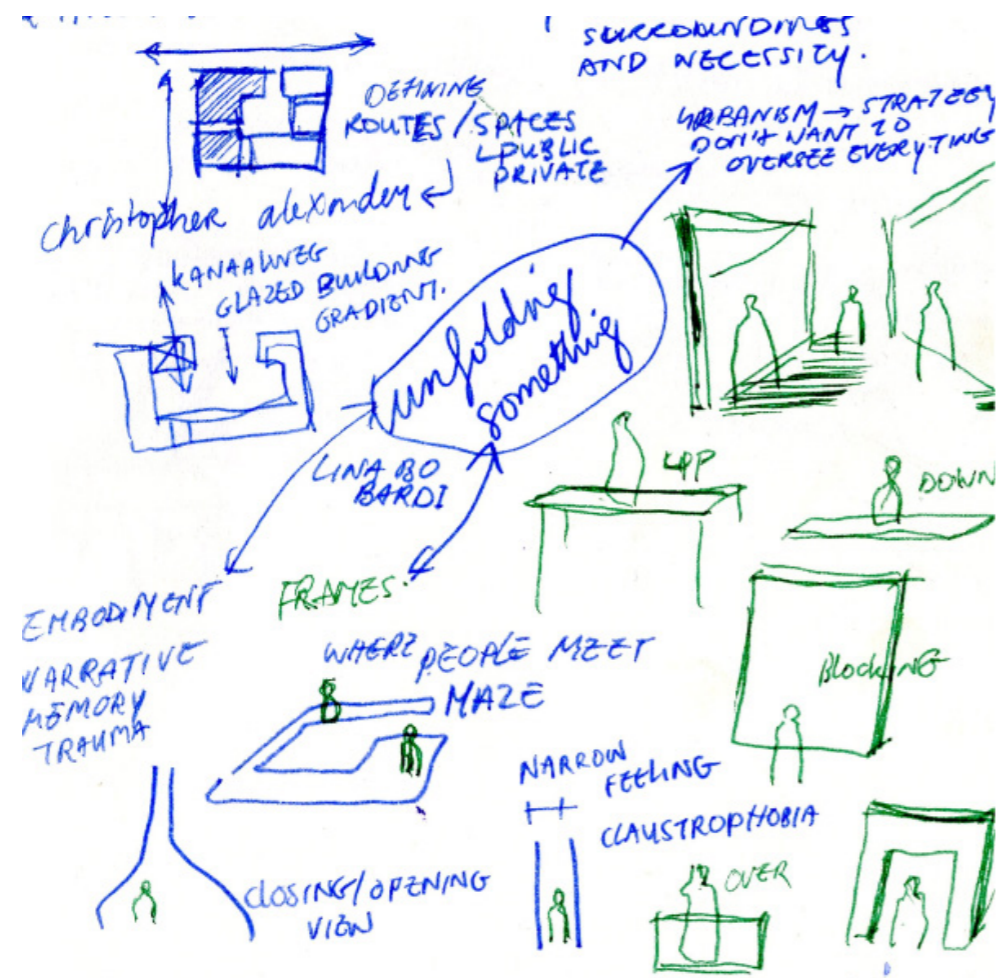 SURROUNDINGS
AND NECESSITY.
DEFINING
ROUTES / SPACES
PUBLIC
PRIVATE
URBANISM → STRATEGY
DON'T WANT TO
OVERSEE EVERYTING
christopher alexander
KANAALWEG
GLAZED BUILDING
GRADIENT.
unfolding
something
LINA BO
BARDI
UP
DOWN
EMBODIMENT
FRAMES.
NARRATIVE
MEMORY
TRAUMA
WHERE PEOPLE MEET
MAZE
BlockiNG
NARROW
FEELING
CLAUSTROPHOBIA
CLOSING/OPENING
VIEW
OVER